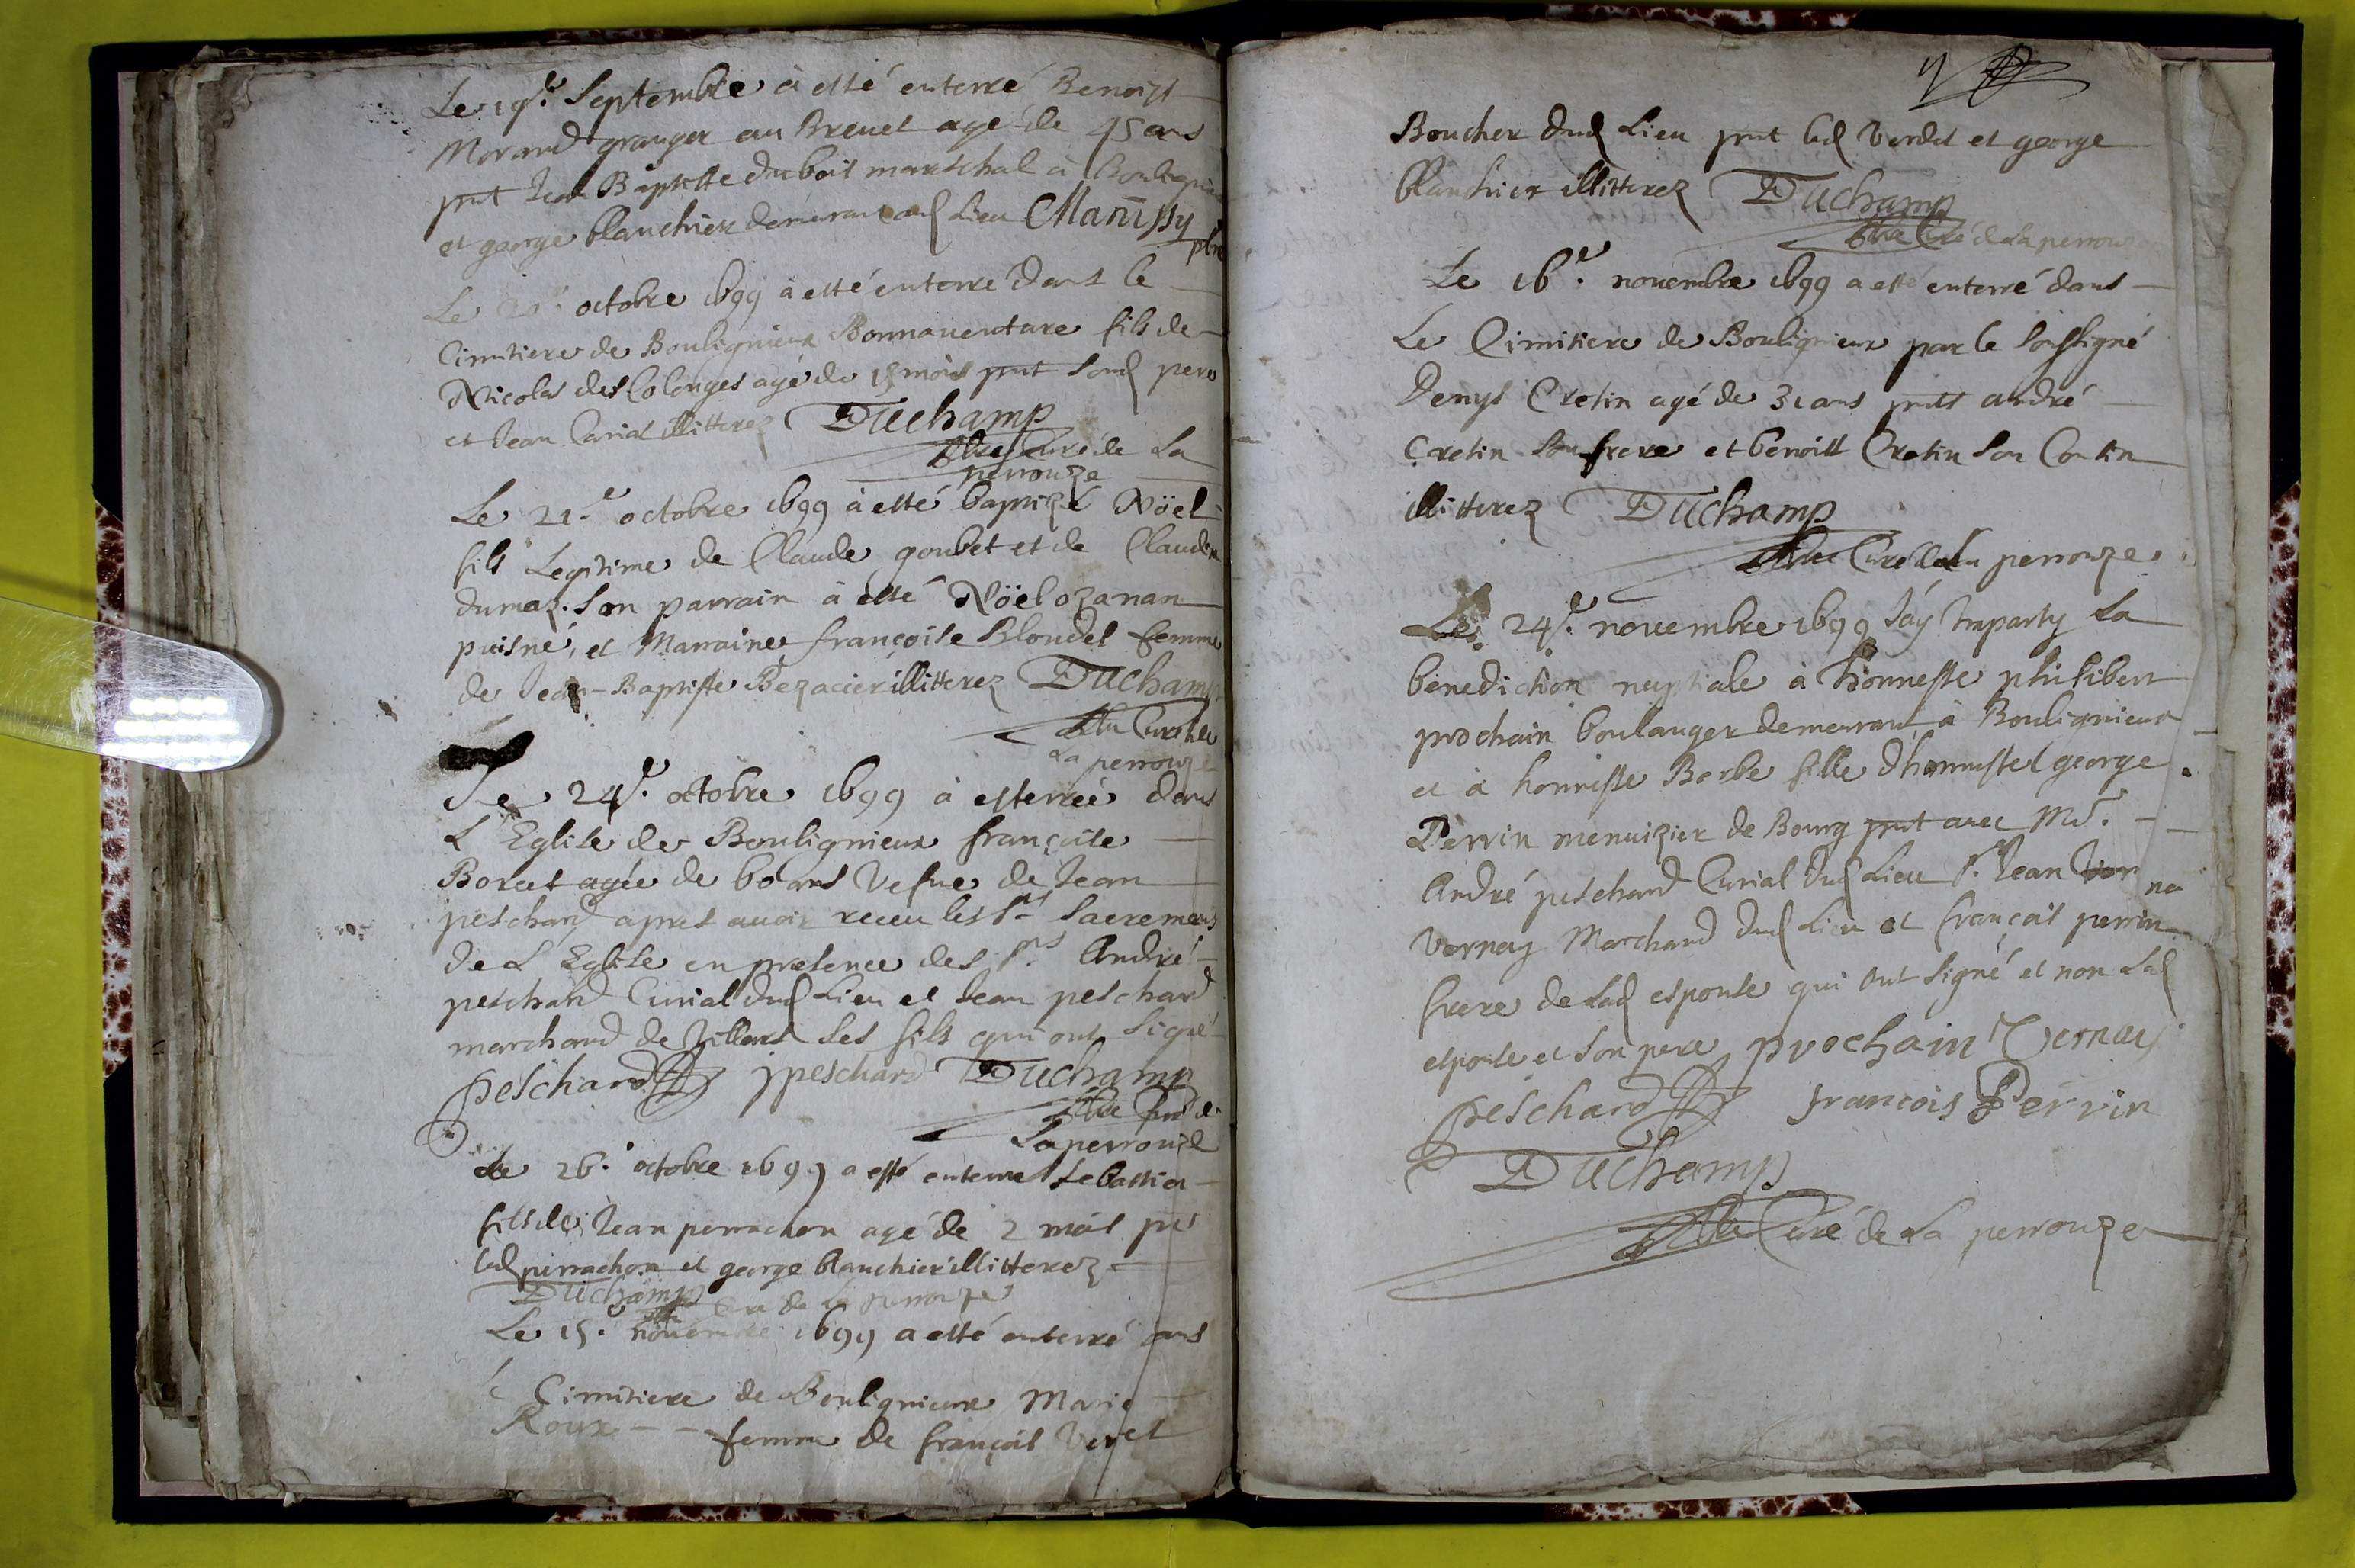 Le 19.e Septembre à esté enterré Benoist
Morand granger au Breuet agé de 45 ans
pnt Jean Baptiste dubois mareschal à
et george blanchier demeurant aud Lieu Manissy
ptre
Le octobre 1699 à esté enterré dans le
Cimitiere de Boulignieux Bonnauenture fils de
Nicolas des Colonges agé de mois pnt Sond pere
et Jean Curial illitterez Duchamp
ptre Curé de La
perrouze
Le 21.e octobre 1699 à esté baptizé Nöel
fils Legitime de Claude goubet et de
dumaz. Son parrain à esté Nöel ozanan
puisné, et Marraine françoise Blondel femme
de Jean-Baptiste Bezacier illitterez Duchamp
ptre Curé de
La perrouze
Le 24.e octobre 1699 à esterrée dans
L'Eglise de Boulignieux françoise
Borcet agée de 60 ans Vefue de Jean
peschard apres auoir receu les Sts Sacremens
de L'Eglise en presence des Srs André
peschard Curial dud Lieu et Jean peschard
marchand de Villars Ses fils qui ont Signé
peschard jpeschard Duchamp
ptre Curé de
Laperrouze
Le 26.e octobre 1699 a esté enterré Sebastien
fils de Jean perrachon agé de 2 mois pnt
led perrachon et george blanchier illitterez
Duchamp Curé de La perrouze
Le 15.e nouembre 1699 a esté enterré dans
le Cimitiere de Boulignieux Marie
Roux - - femme de françois
Boucher dud Lieu pnt led Verdet et george
blanchier illitterez Duchamp
ptre Curé de La perrouze
Le 16.e nouembre 1699 a esté enterré dans
Le Cimitiere de Boulignieux par le Soussigné
Denys Cretin agé de 31 ans pnts andré
Cretin Son frere et benoist Cretin Son Cousin
illitterez Duchamp
ptre Curé de La perrouze
Le 24.e nouembre 1699 J'ay Imparty La
benediction nuptiale à honneste philibert
prochain boulanger demeurant à Boulignieux
et à honneste Barbe fille d'honneste george
Perrin menuizier de Bourg pnt auec Mr.
André peschard Curial dud Lieu Sr. Jean
Vernay Marchand dud Lieu et françois perrin
frere de Lad espouse qui ont Signé et non Lad
espouse et Son pere prochain Vernay
peschard francois Perrin
Duchamp
ptre Curé de La perrouze